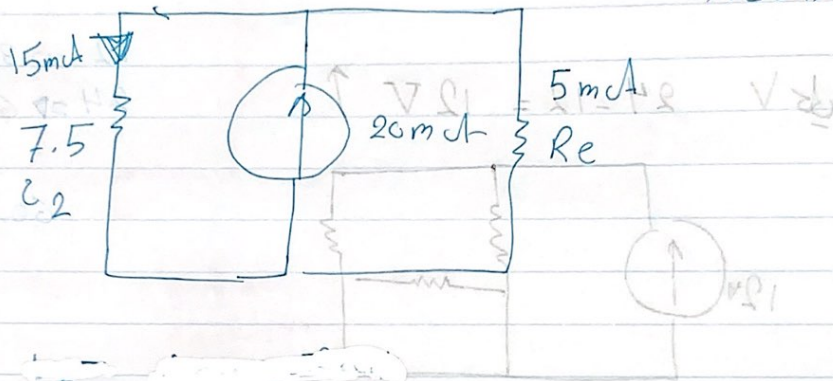 15mA
7.5
i2
20mA
5mA
Re
12 V